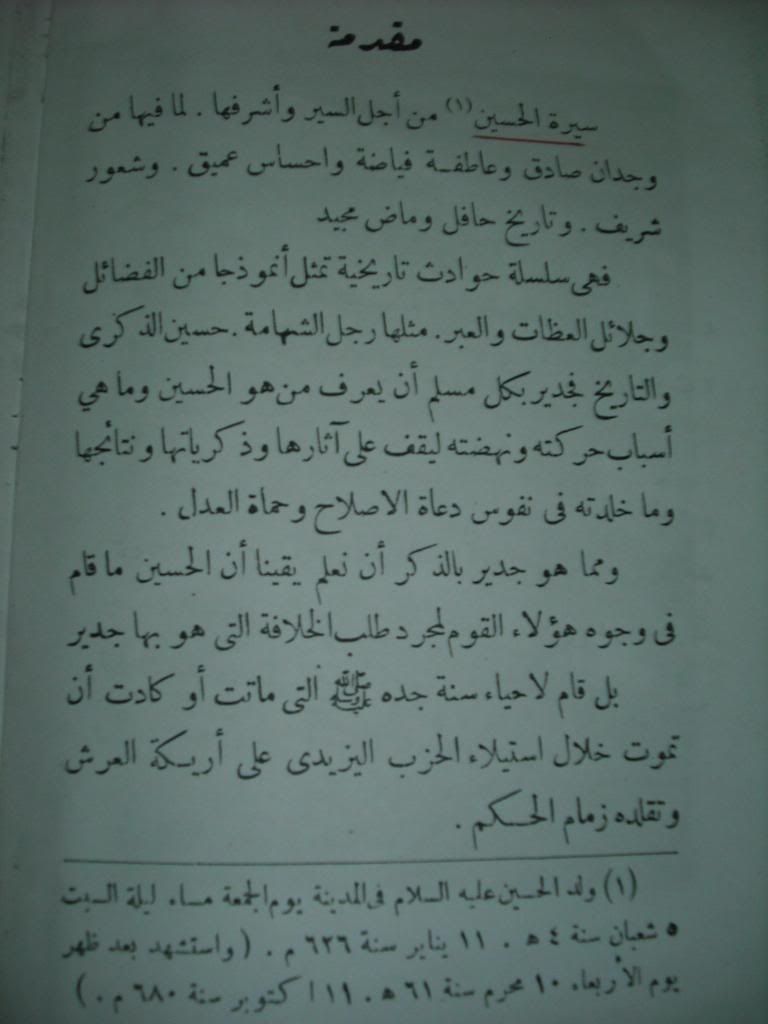 مقدمة
سيرة الحسين (١) من أجل السير وأشرفها . لما فيها من
وجدان صادق وعاطفة فياضة واحساس عميق . وشعور
شريف . وتاريخ حافل وماض مجيد
فهى سلسلة حوادث تاريخية تمثل أنموذجا من الفضائل
وجلائل العظات والعبر . مثلها رجل الشهامة . حسين الذكرى
والتاريخ فجدير بكل مسلم أن يعرف من هو الحسين وما هي
أسباب حركته ونهضته ليقف على آثارها وذكرياتها ونتائجها
وما خلدته فى نفوس دعاة الاصلاح وحماة العدل .
ومما هو جدير بالذكر أن نعلم يقينا أن الحسين ما قام
فى وجوه هؤلاء القوم لمجرد طلب الخلافة التى هو بها جدير
بل قام لاحياء سنة جده ﷺ التى ماتت أو كادت أن
تموت خلال استيلاء الحزب اليزيدى على أريكة العرش
وتقلده زمام الحكم .
(١) ولد الحسين عليه السلام فى المدينة يوم الجمعة مساء ليلة السبت
٥ شعبان سنة ٤ هـ . ١١ يناير سنة ٦٢٦ م . ( واستشهد بعد ظهر
يوم الأربعاء ١٠ محرم سنة ٦١ هـ . ١١ اكتوبر سنة ٦٨٠ م . )